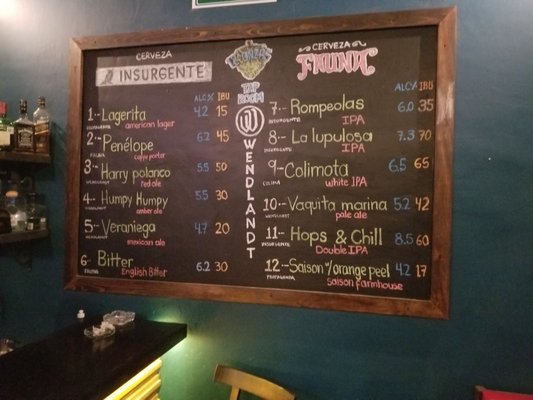 CERVEZA
INSURGENTE
ALC% IBU
1-- Lagerita 4.2 15
american lager
2-- Penélope 6.2 45
FAUNA coffee porter
3-- Harry polanco 5.5 50
WENDLANDT red ale
4-- Humpy Humpy 5.5 30
WENDLANDT amber ale
5-- Veraniega 4.7 20
WENDLANDT mexican ale
6-- Bitter 6.2 30
FAUNA English Bitter
TAP
ROOM
WENDLANDT
CERVEZA
FAUNA
ALC% IBU
7-- Rompeolas 6.0 35
INSURGENTE IPA
8-- La lupulosa 7.3 70
INSURGENTE IPA
9-- Colimota 6.5 65
COLIMA white IPA
10-- Vaquita marina 5.2 42
WENDLANDT pale ale
11-- Hops & Chill 8.5 60
INSURGENTE Double IPA
12-- Saison w/orange peel 4.2 17
PROPAGANDA saison farmhouse